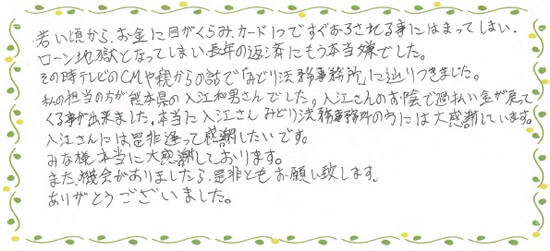 若い頃から、お金に目がくらみ、カード1つですぐおろされる事にはまってしまい、
ローン地獄となってしまい長年の返済にもう本当嫌でした。
その時テレビのCMや親からの話で「みどり法務事務所」に辿りつきました。
私の担当の方が熊本県の入江和男さんでした。入江さんのお陰で過払い金が戻って
くる事が出来ました。本当に入江さん みどり法務事務所の方には大感謝しています。
入江さんには是非逢って感謝したいです。
みな様本当に大感謝しております。
また、機会がありましたら、是非ともお願い致します。
ありがとうございました。